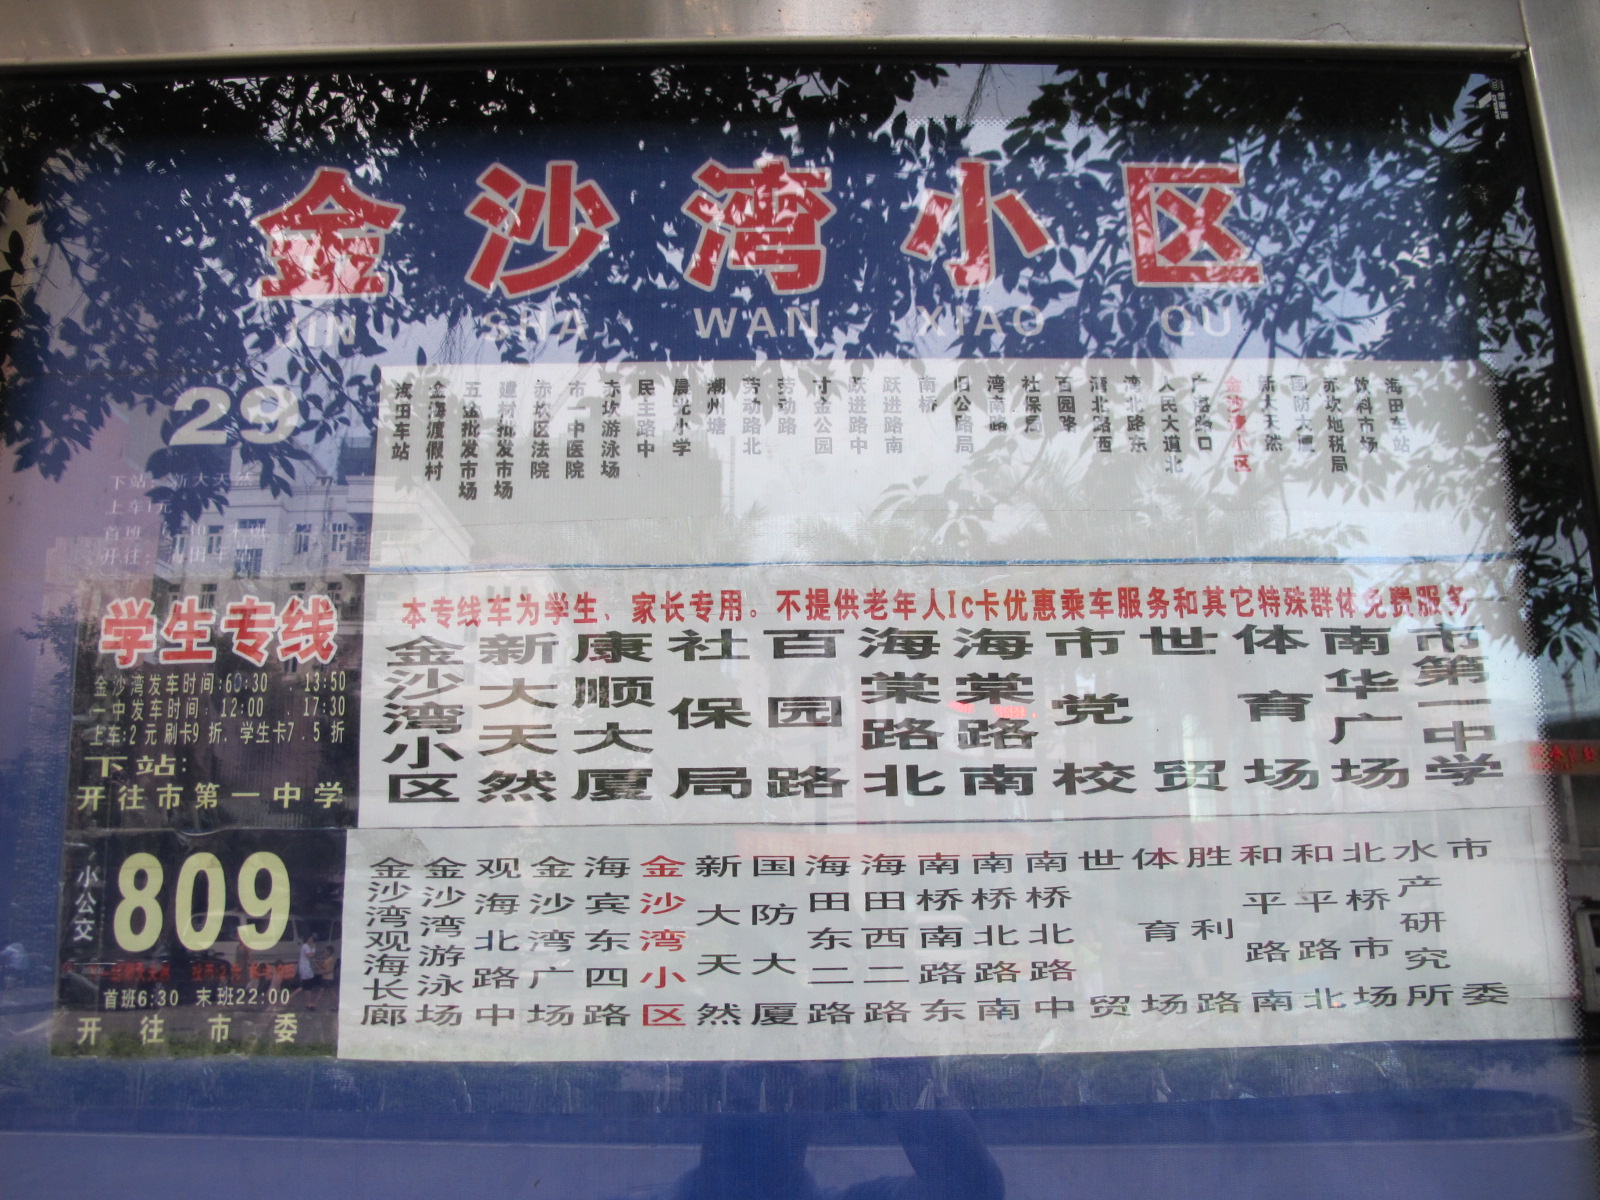 金沙湾小区
JIN SHA WAN XIAO QU
29
下站:新大天然
上车1元
首班
开往:
海田车站
金海渡假村
五金批发市场
建材批发市场
赤坎区法院
市一中医院
赤坎游泳场
民主路中
晨光小学
潮州塘
劳动路北
劳动路
寸金公园
跃进路中
跃进路南
南桥
旧公路局
湾南路
社保局
百园路
湾北路西
湾北路东
人民大道北
广海路口
金沙湾小区
新大天然
国防大厦
赤坎地税局
饮料市场
海田车站
学生专线
金沙湾发车时间:60:30 . 13:50
一中发车时间: 12:00 . 17:30
上车:2 元 刷卡9 折, 学生卡7.5 折
下站:
开往市第一中学
本专线车为学生、家长专用。不提供老年人Ic卡优惠乘车服务和其它特殊群体免费服务
金沙湾小区
新大天然
康顺大厦
社保局
百园路
海棠路北
海棠路南
市党校
世贸
体育场
南华广场
市第一中学
小公交
809
首班6:30 末班22:00
开往市委
金沙湾观海长廊
金沙湾游泳场
观海北路中
金沙湾广场
海宾东四路
金沙湾小区
新大天然
国防大厦
海田东二路
海田西二路
南桥南路东
南桥北路南
南桥北路中
世贸
体育场
胜利路
和平路南
和平路北
北桥市场
水产研究所
市委